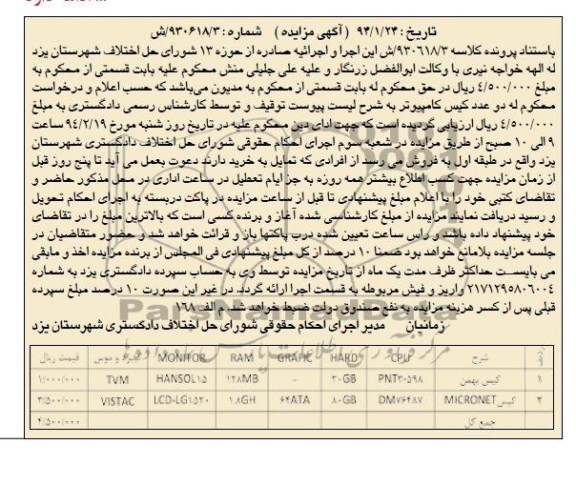 تاریخ : ۹۴/۱/۲۴ ( آگهی مزایده ) شماره : ۹۳۰۶۱۸/۳/ش
باستناد پرونده کلاسه ۹۳۰۶۱۸/۳/ش این اجرا و اجرائیه صادره از حوزه ۱۳ شورای حل اختلاف شهرستان یزد
له الهه خواجه نیری با وکالت ابوالفضل زرنگار و علیه علی جلیلی منش محکوم علیه بابت قسمتی از محکوم به
مبلغ ۴/۵۰۰/۰۰۰ ریال در حق محکوم له بابت قسمتی از محکوم به مدیون می‌باشد که حسب اعلام و درخواست
محکوم له دو عدد کیس کامپیوتر به شرح لیست پیوست توقیف و توسط کارشناس رسمی دادگستری به مبلغ
۴/۵۰۰/۰۰۰ ریال ارزیابی گردیده است که جهت ادای دین محکوم علیه در تاریخ روز شنبه مورخ ۹۴/۲/۱۹ ساعت
۹ الی ۱۰ صبح از طریق مزایده در شعبه سوم اجرای احکام حقوقی شورای حل اختلاف دادگستری شهرستان
یزد واقع در طبقه اول به فروش می رسد از افرادی که تمایل به خرید دارند دعوت بعمل می آید تا پنج روز قبل
از زمان مزایده جهت کسب اطلاع بیشتر همه روزه به جز ایام تعطیل در ساعت اداری در محل مذکور حاضر و
تقاضای کتبی خود را با اعلام مبلغ پیشنهادی تا قبل از ساعت مزایده در پاکت دربسته به اجرای احکام تحویل
و رسید دریافت نمایند مزایده از مبلغ کارشناسی شده آغاز و برنده کسی است که بالاترین مبلغ را در تقاضای
خود پیشنهاد داده باشد و راس ساعت تعیین شده درب پاکتها باز و قرائت خواهد شد و حضور متقاضیان در
جلسه مزایده بلامانع خواهد بود ضمنا ۱۰ درصد از کل مبلغ پیشنهادی فی المجلس از برنده مزایده اخذ و مابقی
می بایست حداکثر ظرف مدت یک ماه از تاریخ مزایده توسط وی به حساب سپرده دادگستری یزد به شماره
۲۱۷۱۲۹۵۸۰۶۰۰۴ واریز و فیش مربوطه به قسمت اجرا ارائه گردد. در غیر این صورت ۱۰ درصد مبلغ سپرده
قبلی پس از کسر هزینه مزایده به نفع صندوق دولت ضبط خواهد شد. / الف ۱۶۸
زمانیان مدیر اجرای احکام حقوقی شورای حل اختلاف دادگستری شهرستان یزد
ردیف شرح CPU HARD GRAFIC RAM MONITOR قیمت ریال
۱ کیس بهمن PNT۳۰۵۹۸ ۳۰GB - ۱۲۸MB HANSOL۱۵ TVM ۱/۰۰۰/۰۰۰
۲ کیس MICRONET DM۷۶۴۸۷ ۸۰GB ۶۴ATA ۱.۸GH LCD-LG۱۵۳۰ VISTAC ۳/۵۰۰/۰۰۰
جمع کل ۴/۵۰۰/۰۰۰
ParsNamadData